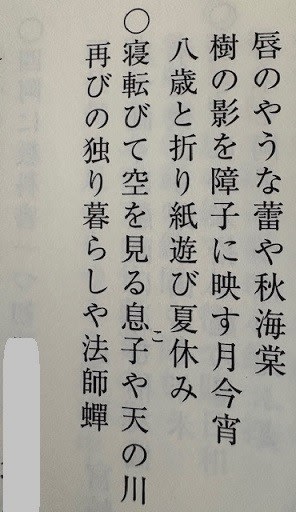 唇のやうな蕾や秋海棠
樹の影を障子に映す月今宵
八歳と折り紙遊び夏休み
○寝転びて空を見る息子や天の川
こ
再びの独り暮らしや法師蟬